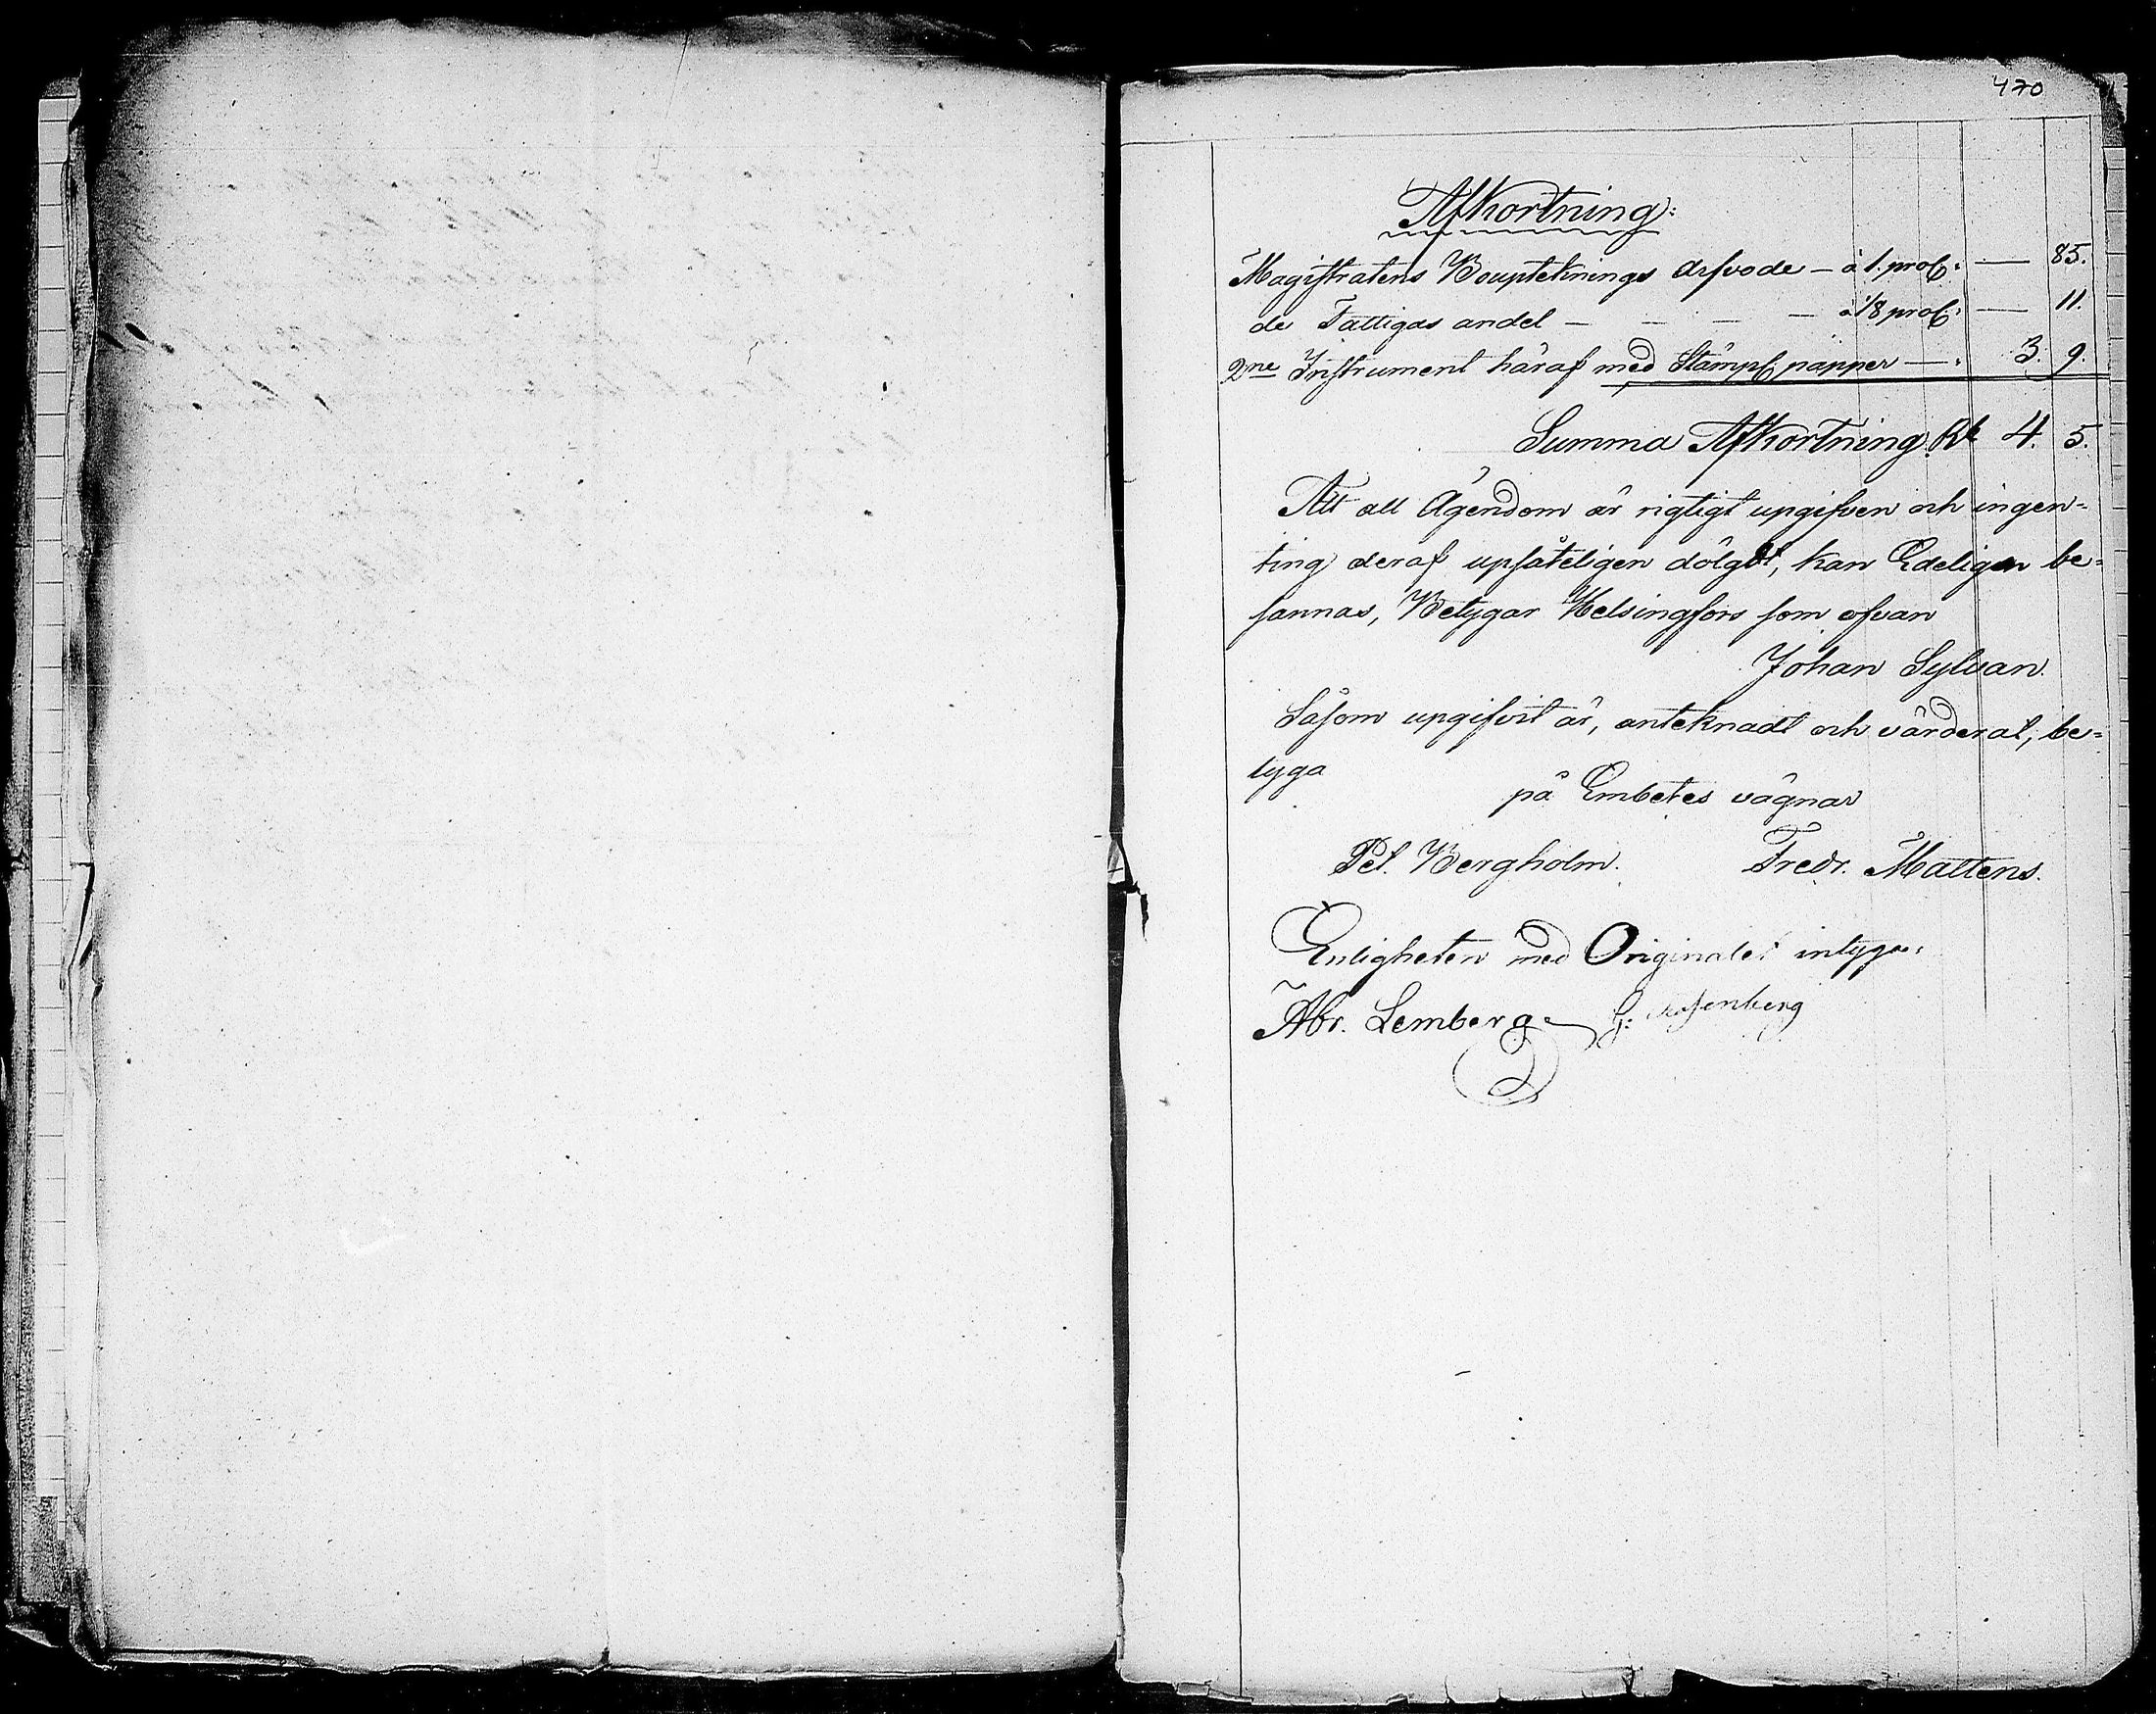 470
Afkortning:
Magistratens Boupteknings Arfvode — à 1. proC: — 85.
de Fattigas andel — — — — à 1/8 proC: — 11.
2ne Instrument häraf med Stämpl. papper — : 3. 9.
Summa Afkortning. Rb 4. 5.
Att all Ägendom är rigtigt upgifven och ingen=
ting deraf upsåteligen dölgdt, kan Edeligen be=
sannas, Betygar Helsingfors som ofvan
Johan Sylvan.
Såsom upgifvit är, anteknadt och värderat, be=
tyga
på Embetes vägnar
Pet. Bergholm. Fredr. Mattens.
Enligheten med Originalet intyga:
Abr. Lemberg G: Rosenberg